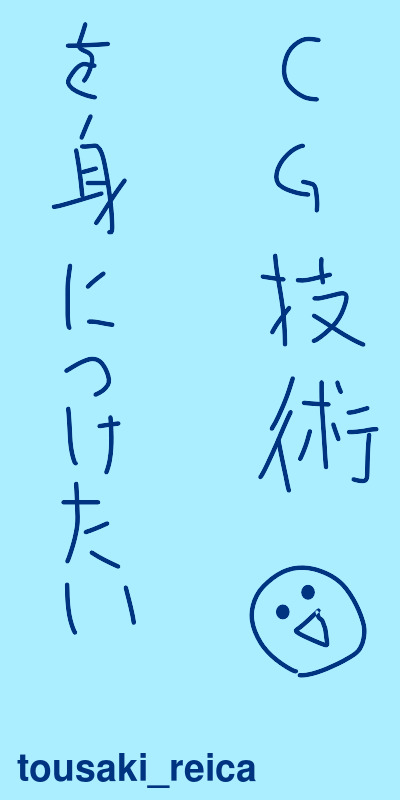 CG技術
を身につけたい
tousaki_reica